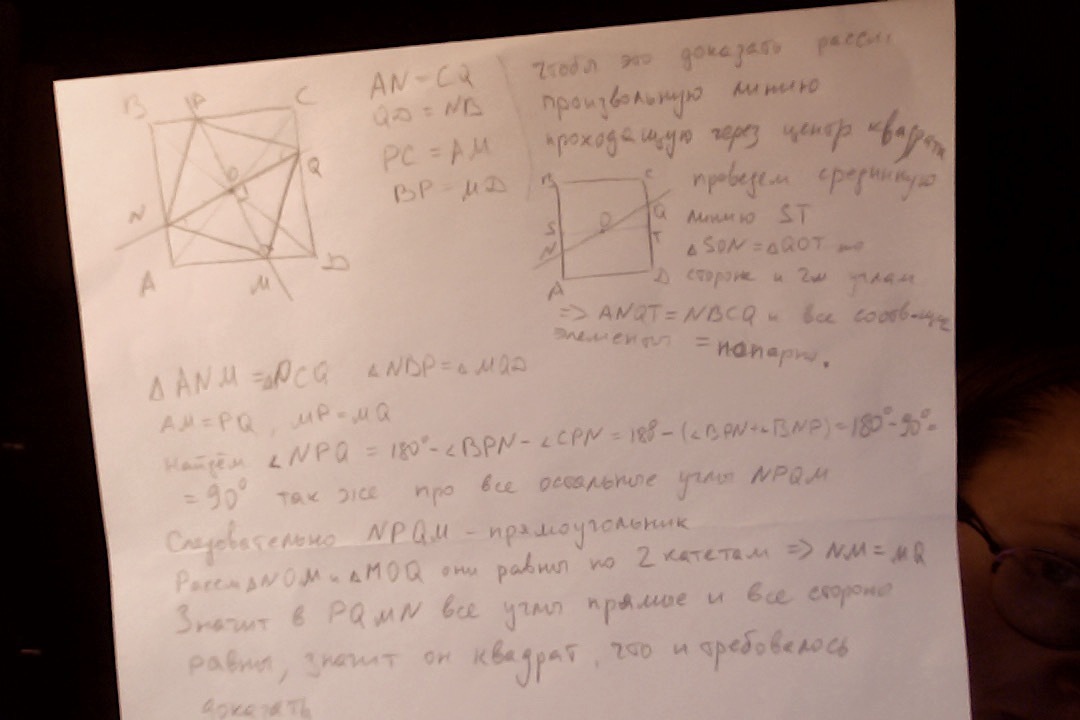 B P C
Q
O
N
A M D
AN = CQ
QD = NB
PC = AM
BP = MD
Чтобы это доказать рассм.
произвольную линию
проходящую через центр квадрата
проведем срединную
линию ST
△SON = △QOT по
стороне и 2м углам
B C
S O Q
N T
A D
=> ANQT = NBCQ и все соотв-щие
элементы = попарно.
△ANM = △PCQ △NBP = △MQD
AM = PQ, MP = MQ
Найдём ∠NPQ = 180° - ∠BPN - ∠CPN = 180 - (∠BPN + ∠BNP) = 180° - 90° =
= 90° так же про все остальные углы NPQM
Следовательно NPQM - прямоугольник
Рассм △NOM и △MOQ они равны по 2 катетам => NM = MQ
Значит в PQMN все углы прямые и все стороны
равны, значит он квадрат, что и требовалось
доказать